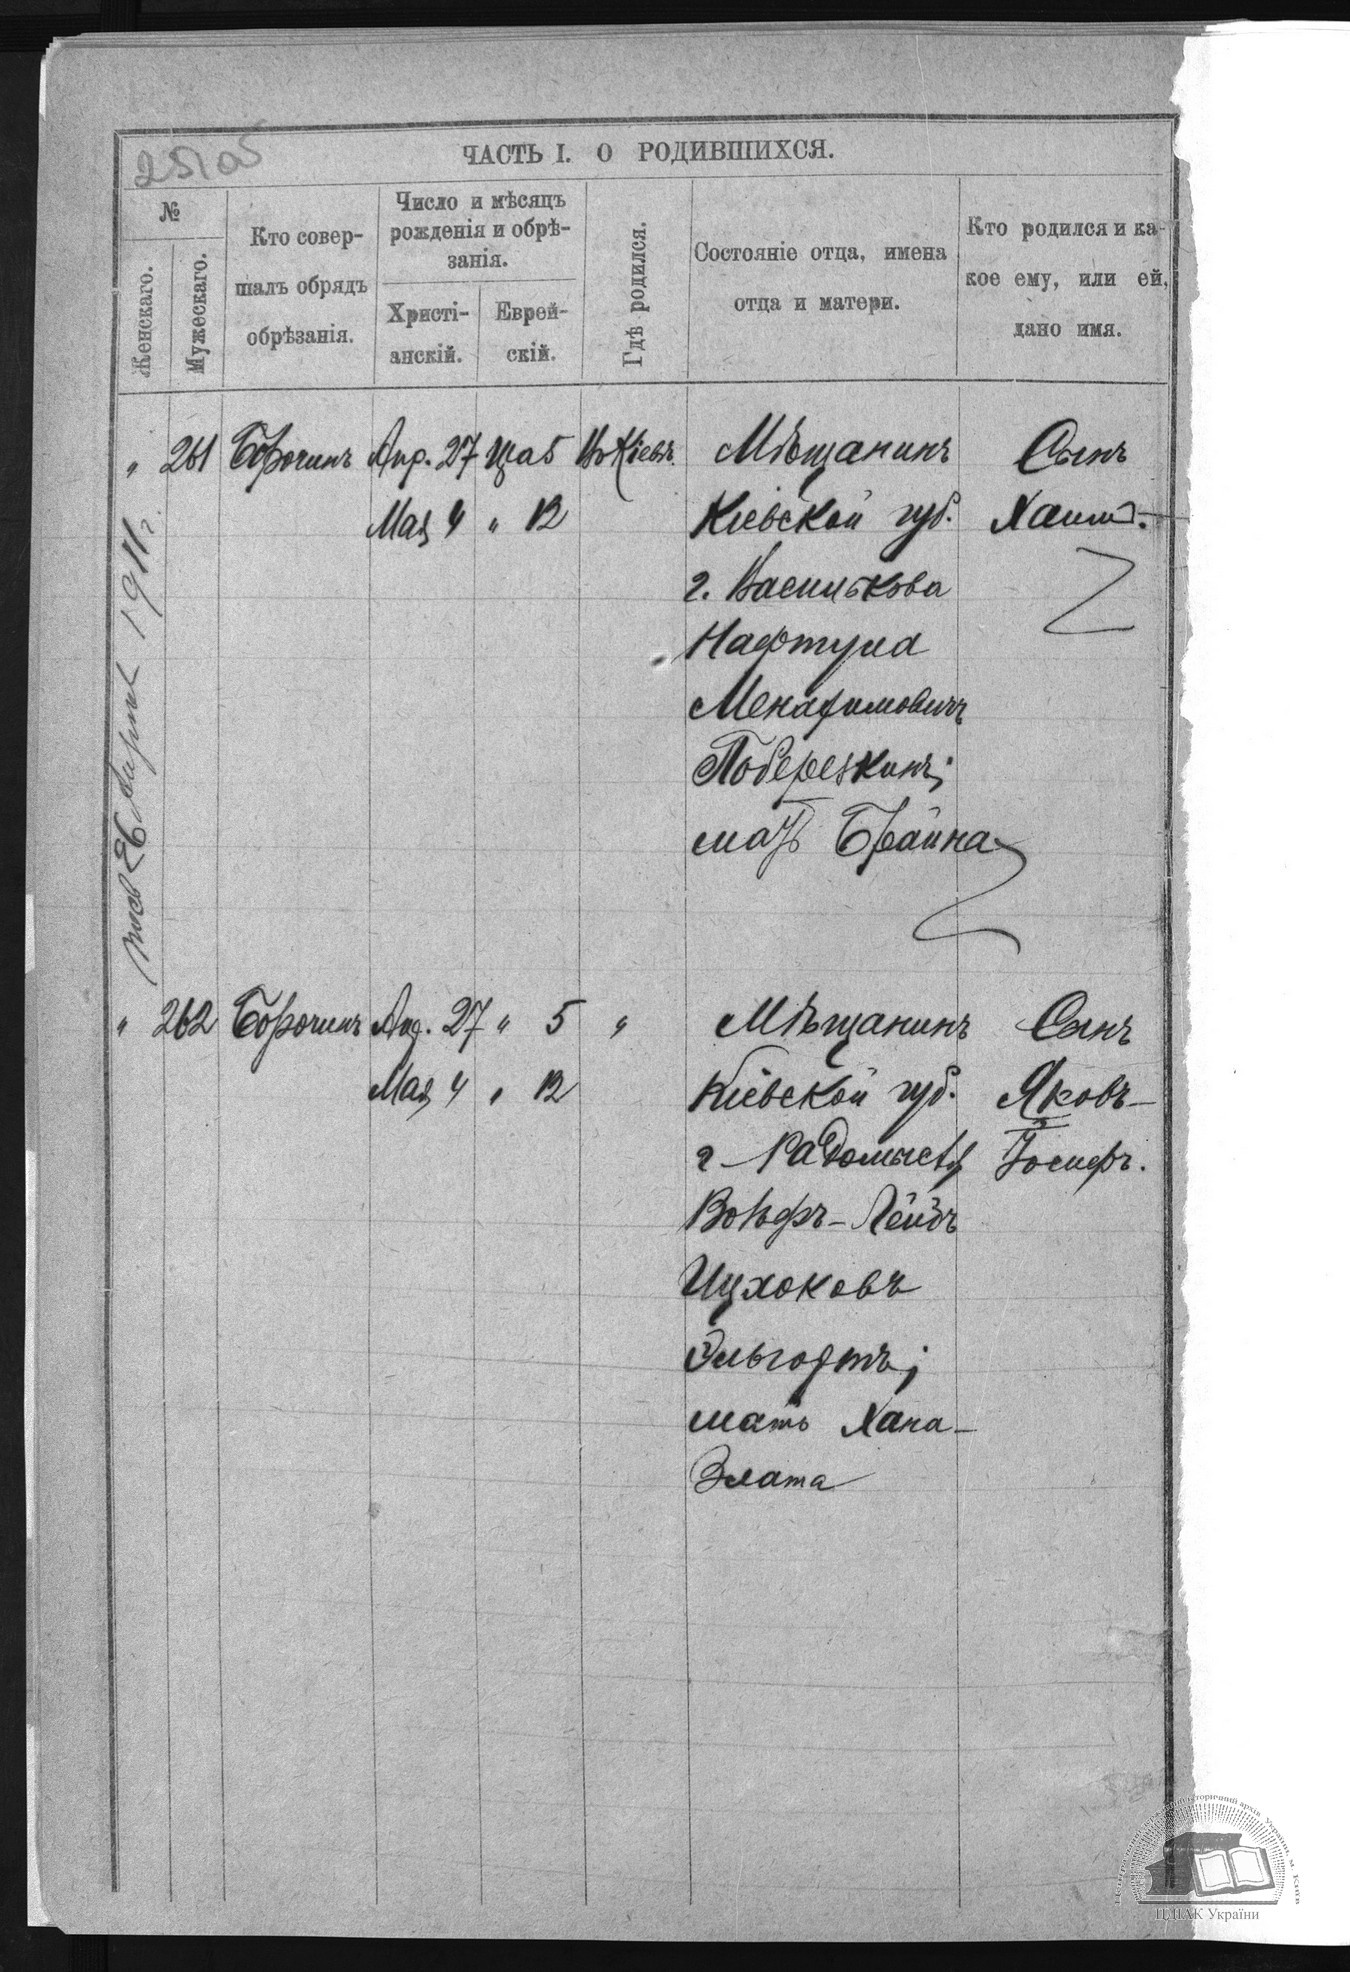 25105
ЧАСТЬ I. О РОДИВШИХСЯ.
№
Женскаго.
Мужескаго.
Кто совер-
шалъ обрядъ
обрѣзанія.
Число и мѣсяцъ
рожденія и обрѣ-
занія.
Христі-
анскій.
Еврей-
скій.
Гдѣ родился.
Состояніе отца, имена
отца и матери.
Кто родился и ка-
кое ему, или ей,
дано имя.
" 261 Борочинъ Апр. 27 5 Въ Кіевѣ. Мѣщанинъ Сынъ
Мая 4 " 12 Кіевской губ. Хаимъ.
г. Василькова
Нафтула
Менахимовичъ
Поберезкинъ;
мать Брайна
26 1911 г.
" 262 Борочинъ Апр. 27 " 5 " Мѣщанинъ Сынъ
Мая 4 " 12 Кіевской губ. Яковъ-
г. Радомысля Іосифъ.
Вольфъ-Лейбъ
Ицхоковъ
Эльгортъ;
мать Хана-
Злата
ЦДІАК України